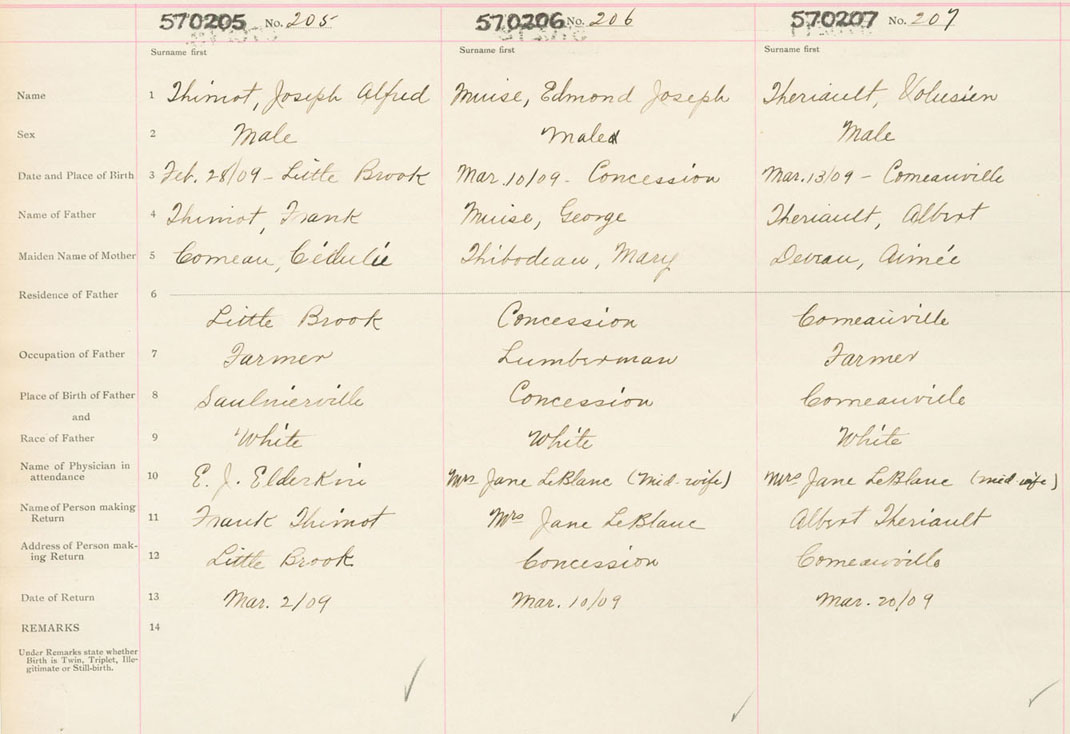 570205 No. 205 570206 No. 206 570207 No. 207
Surname first Surname first Surname first
Name 1 Thimot, Joseph Alfred Muise, Edmond Joseph Theriault, Volusien
Sex 2 Male Male Male
Date and Place of Birth 3 Feb. 28/09 - Little Brook Mar. 10/09 - Concession Mar. 13/09 - Comeauville
Name of Father 4 Thimot, Frank Muise, George Theriault, Albert
Maiden Name of Mother 5 Comeau, Cédulie Thibodeau, Mary Deveau, Aimée
Residence of Father 6
Little Brook Concession Comeauville
Occupation of Father 7 Farmer Lumberman Farmer
Place of Birth of Father 8 Saulnierville Concession Comeauville
and
Race of Father 9 White White White
Name of Physician in
attendance 10 E. J. Elderkin Mrs Jane LeBlanc (mid-wife) Mrs Jane LeBlanc (mid-wife)
Name of Person making
Return 11 Frank Thimot Mrs Jane LeBlanc Albert Theriault
Address of Person mak-
ing Return 12 Little Brook Concession Comeauville
Date of Return 13 Mar. 2/09 Mar. 10/09 Mar. 20/09
REMARKS 14
Under Remarks state whether
Birth is Twin, Triplet, Ille-
gitimate or Still-birth.